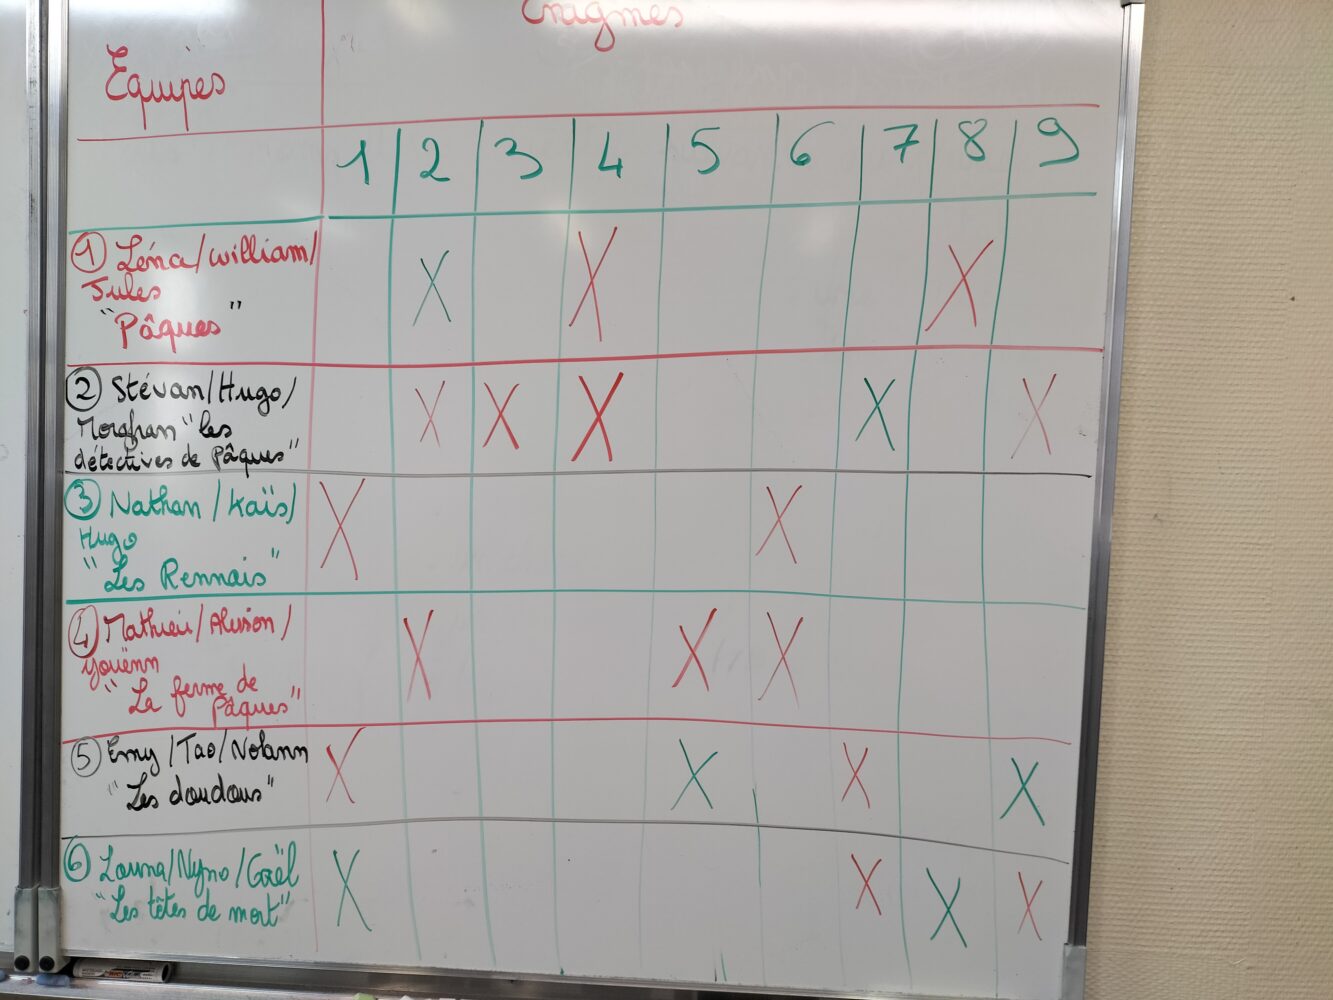 Enigmes
Equipes
1 2 3 4 5 6 7 8 9
① Léna/William/
Jules
"Pâques"
X X X
② Stévan/Hugo/
Morghan "les
détectives de Pâques"
X X X X X
③ Nathan/Kaïs/
Hugo
"Les Rennais"
X X
④ Mathieu/Alisson/
Youënn
"La ferme de
Pâques"
X X X
⑤ Emy/Tao/Nolann
"Les doudous"
X X X X
⑥ Louna/Nymo/Gaël
"Les têtes de mort"
X X X X